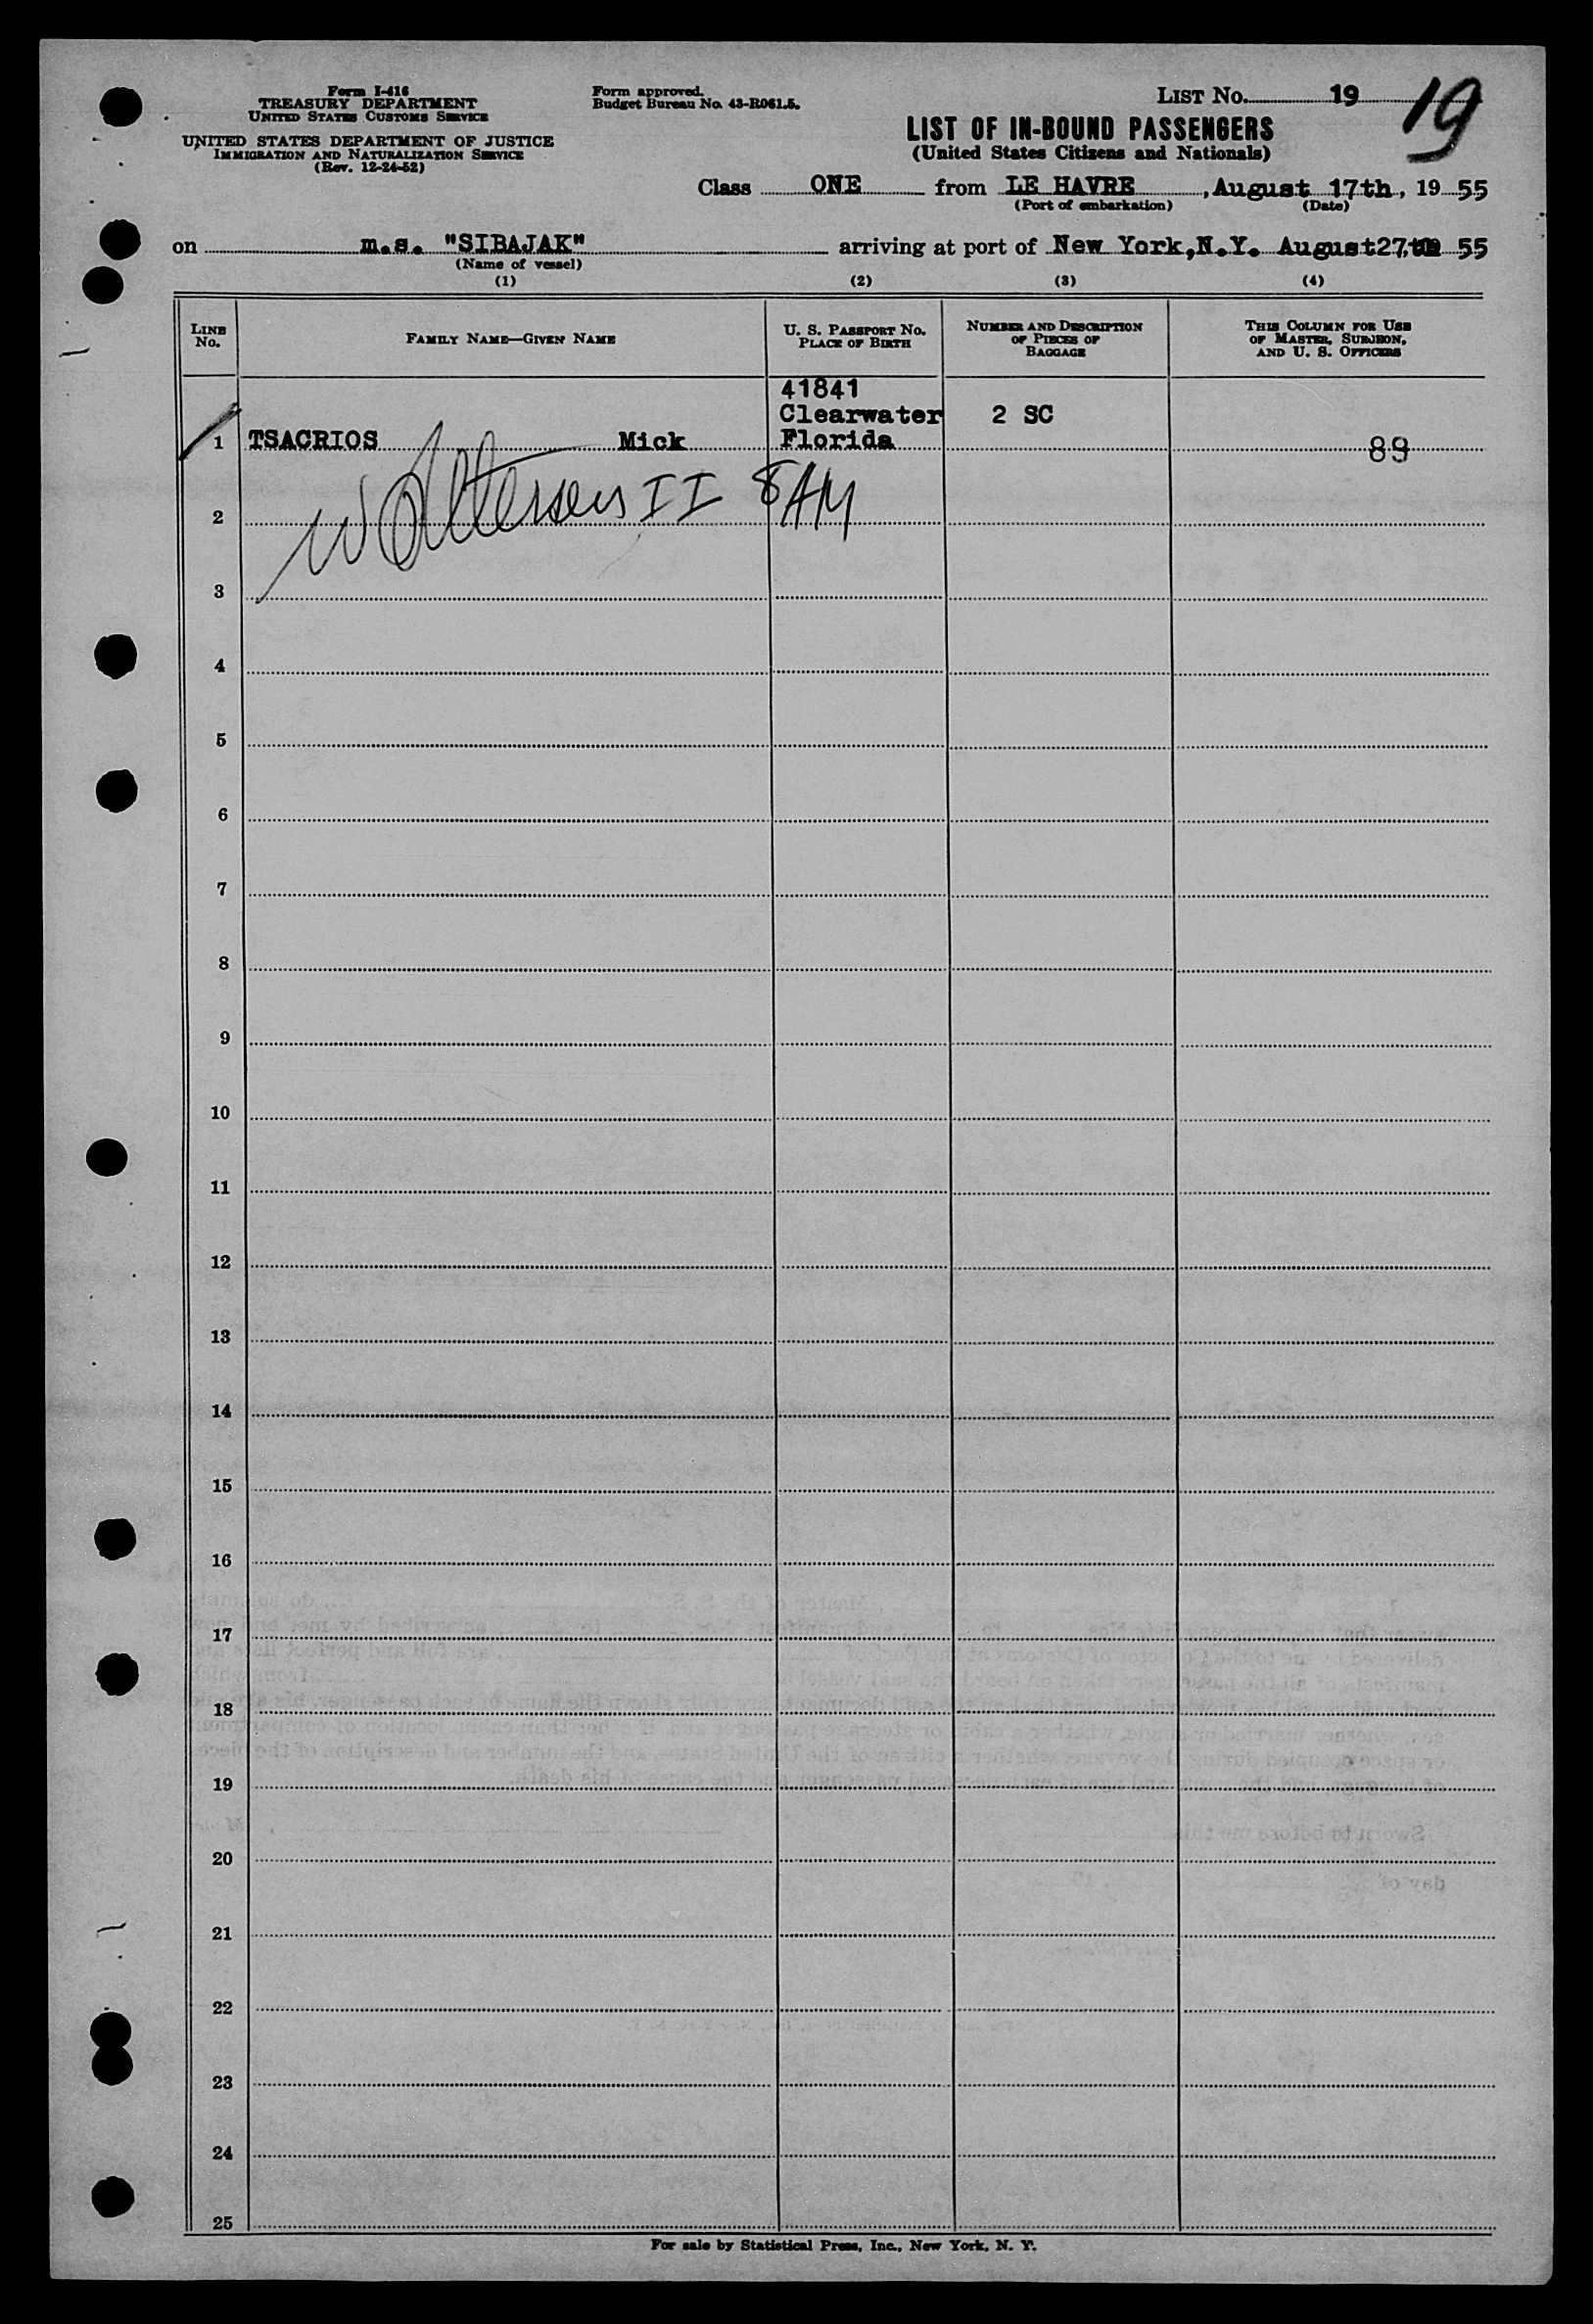 Form I-416
TREASURY DEPARTMENT
UNITED STATES CUSTOMS SERVICE
UNITED STATES DEPARTMENT OF JUSTICE
IMMIGRATION AND NATURALIZATION SERVICE
(Rev. 12-24-52)
Form approved.
Budget Bureau No. 43-R061.5.
LIST No. 19
19
LIST OF IN-BOUND PASSENGERS
(United States Citizens and Nationals)
Class ONE from LE HAVRE, August 17th, 19 55
(Port of embarkation) (Date)
on m.s. "SIBAJAK" arriving at port of New York, N.Y. August 27, 55
(Name of vessel)
(1) (2) (3) (4)
LINE No.
FAMILY NAME—GIVEN NAME
U. S. PASSPORT No.
PLACE OF BIRTH
NUMBER AND DESCRIPTION
OF PIECES OF
BAGGAGE
THIS COLUMN FOR USE
OF MASTER, SURGEON,
AND U. S. OFFICERS
41841
Clearwater 2 SC
1 TSACRIOS Mick Florida 89
II 8 AM
2
3
4
5
6
7
8
9
10
11
12
13
14
15
16
17
18
19
20
21
22
23
24
25
For sale by Statistical Press, Inc., New York, N. Y.